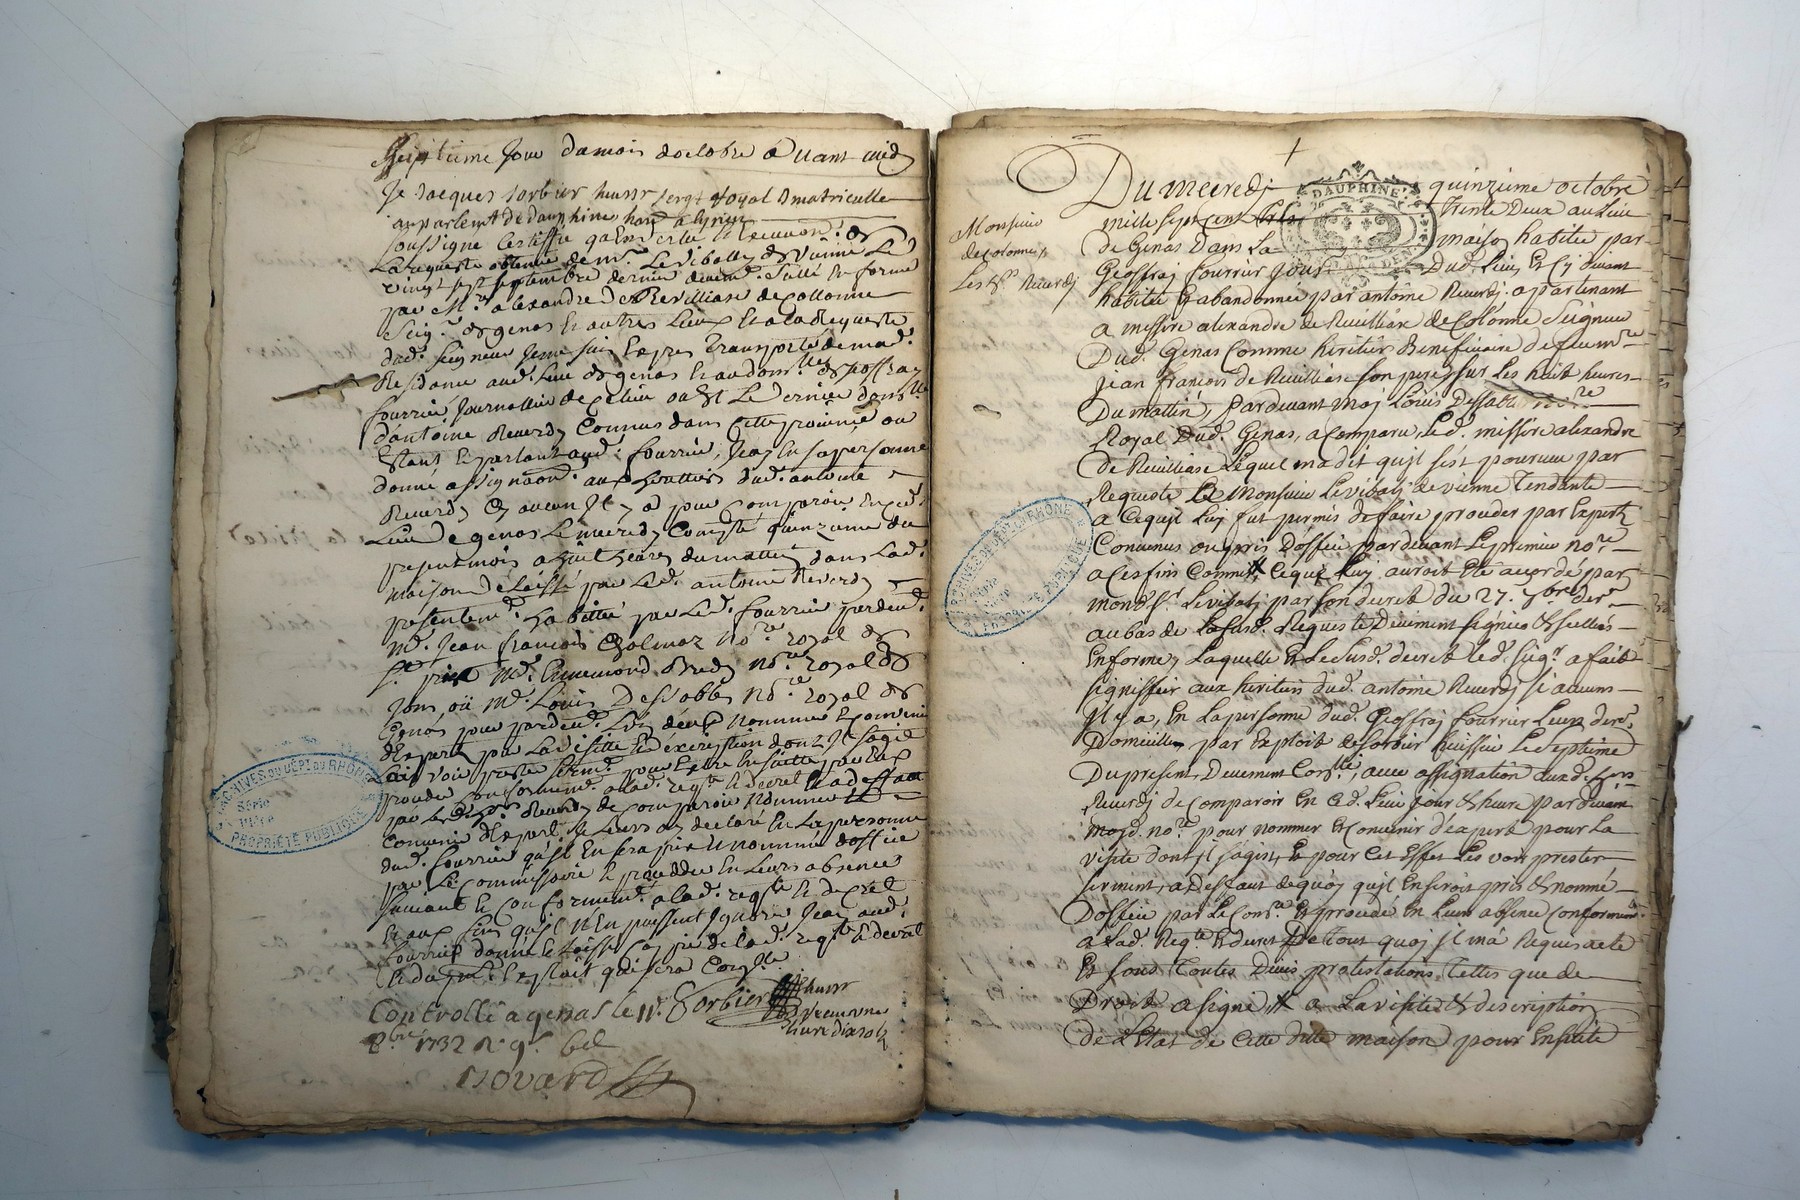 Septieme Jour du mois d'octobre avant midy
Je Jacques Sorbier huissr sergt Royal Immatriculle
au parlemt de dauphine hant a
soussigné Certiffie qu'En vertu
La requeste obtenue de mr. Le vibally de vienne Le
vingt sept septembre dernier devemt. scellé En forme
par Mre. alexandre De Revilliase de collonne
Seigr. de genas et autres Lieux Et a la Requeste
dud. seigneur Jeme suis Expres Transporté de mad.
Residance aud. Lieu de genas Et au domlle de Joffray
fourrier Journallier de ce lieu ou Est Le Dernier domlle
d'antoine Reverdy Connus dans Cette province ou
Estant Et parlant aud. fourrier, Jay En sa personne
donné assignaon. aux heritiers dud. antoine
Reverdy sy aucun Jl y a pour Comparoir En ced.
Lieu de genas Le mercredy Compté quinzieme du
present mois a huit heures du mattin dans Lad.
maison par Led. antoine Reverdy
presentemt. habittée par Led. fourrier pardevt.
Me. Jean françois Cholmaz Nore. royal de
St. priet Me. Ennemond Bredy Nore. royal de
Jons ou Me. Louis Descobbes Nore. royal de
Genas pour pardevt. L'un d'eux nommer et convenir
d'Expertz pour La visitte Et description dont Jl sagit
Les voir preste sermt. pour Estre En suitte par Eux
proceder Conformemt. a lad. reqte. Et decret Et a deffaut
par Lesdts. Reverdy de comparoir Nommer Et
Convenir d'Expertz Je Leurs ay declaré En La personne
dud. fourrier qu'Jl En sera pris Et nommé doffice
par Le Commissaire Et procedder En Leurs absence
suivant Et Conformemt. a lad. reqte Et decret
Et aux fins qu'Jls n'En puissent Jgnorer Jay aud.
fourrier donné Et Laissé Copie de lad. reqte Et decret
Et du Exploit qui sera Conlle
Sorbier huissr
Controllé a genas le 11e.
8bre 1732 R. 9s. 6d
Bovard
Monsieur
de colonne
Les hrs Reverdy
Du mecredy quinzieme octobre
mille sept cent trente Deux au Lieu
de Genas Dans La maison habitée par
Geoffray fourrier jour Dud. Lieu, Et Cy devant
habitée Et abandonnée par antoine Reverdy. apartenant
a messire alexandre de Revilliase de Colonne Seigneur
Dud. Genas Comme heritier Beneficiaire de feu mre
jean françois de Revilliase son pere, sur Les huit heures
Du mattin, pardevant moy Louis Descobbes nore
Royal Dud. Genas, a Comparu, Led. messire alexandre
de Revilliase Lequel m'a dit quil s'est pourveu par
Requeste a Monsieur Le vibaly de vienne Tendante
a Ce quil Luy fut permis de faire proceder par Expertz
Convenus ou pris D'office pardevant Le premier nore.
a Ces fins Commis, Ce que Luy auroit Eté accordé par
mond. Sr. Le vibaly par son decret du 27. 7bre. der.
au bas de La susd. Requeste Deuement signée & scellés
En forme, Laquelle Et Le susd. decret led. seigr. a fait
signiffier aux heritiers dud. antoine Reverdy si aucuns
Jl y a, En La personne dud. Geoffray fourrier Leur derr.
Domeille, par Exploit de Sorbier huissier Le septieme
Du present, Deuement Conlle, avec assignation auxd. hers.
Reverdy de comparoir En Ced. Lieu jour & heure pardevant
moyd. nore. pour nommer Et Convenir d'expert pour La
visite dont Jl sagist, Et pour Cet Effet Les voir prester
serment, a Deffaut de quoy quil En seroit pris & nommé
Doffice par Le Comre. Et procedé En Leurs absence Conformemt.
a Lad. Reqte Et decret De Tout quoy Jl m'a Requis acte
Et sous Toutes Dues protestations Telles que de
Droit a signé a La visite & description
de L'Etat de Cette ditte maison pour Ensuite
DAUPHINE
ARCHIVES DU DÉPT DU RHÔNE
Série
PROPRIÉTÉ PUBLIQUE
ARCHIVES DU DÉPT DU RHÔNE
Série
PROPRIÉTÉ PUBLIQUE